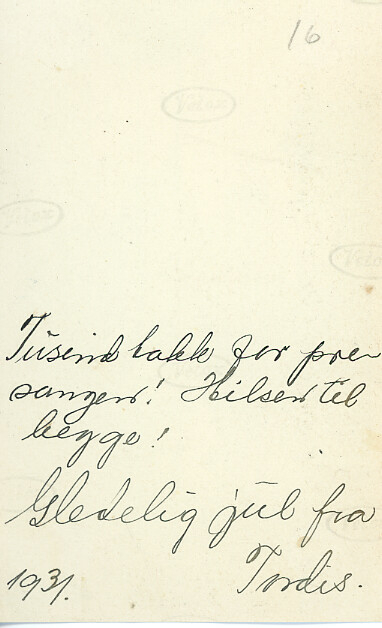 16
Velox
Velox
Velox
Tusind takk for pre
sangen! Hilsen til
begge!
Gledelig jul fra
Tordis.
1931.